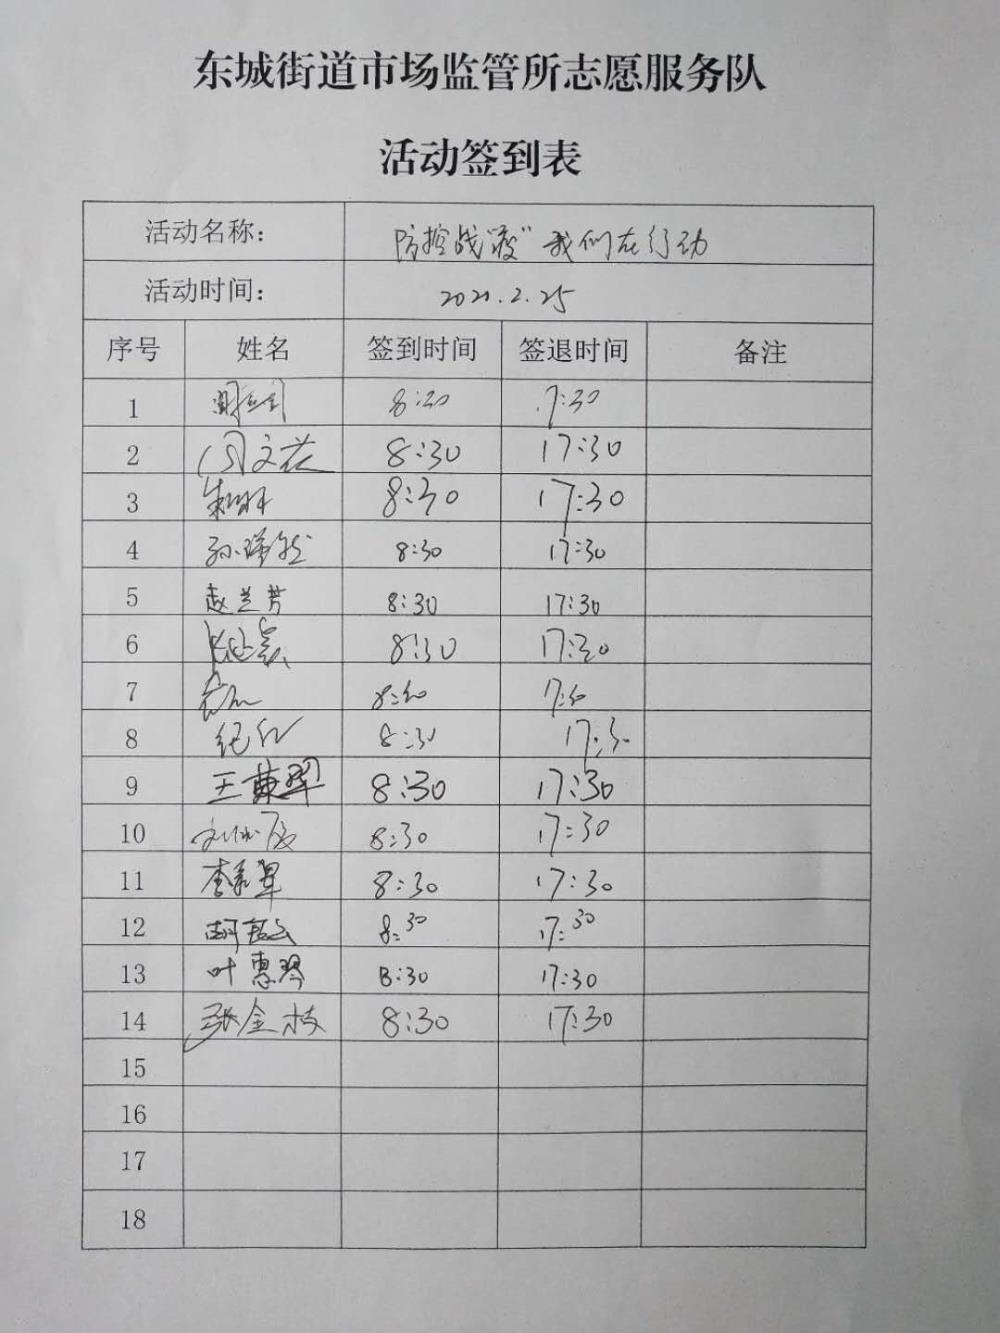 东城街道市场监管所志愿服务队
活动签到表
活动名称： 防控战"疫"我们在行动
活动时间： 2021.2.25
序号 姓名 签到时间 签退时间 备注
1 8:30 17:30
2 周文花 8:30 17:30
3 8:30 17:30
4 8:30 17:30
5 赵兰芳 8:30 17:30
6 8:30 17:30
7 8:30 17:30
8 纪红 8:30 17:30
9 王秉翠 8:30 17:30
10 8:30 17:30
11 8:30 17:30
12 8:30 17:30
13 叶惠琴 8:30 17:30
14 张金枝 8:30 17:30
15
16
17
18